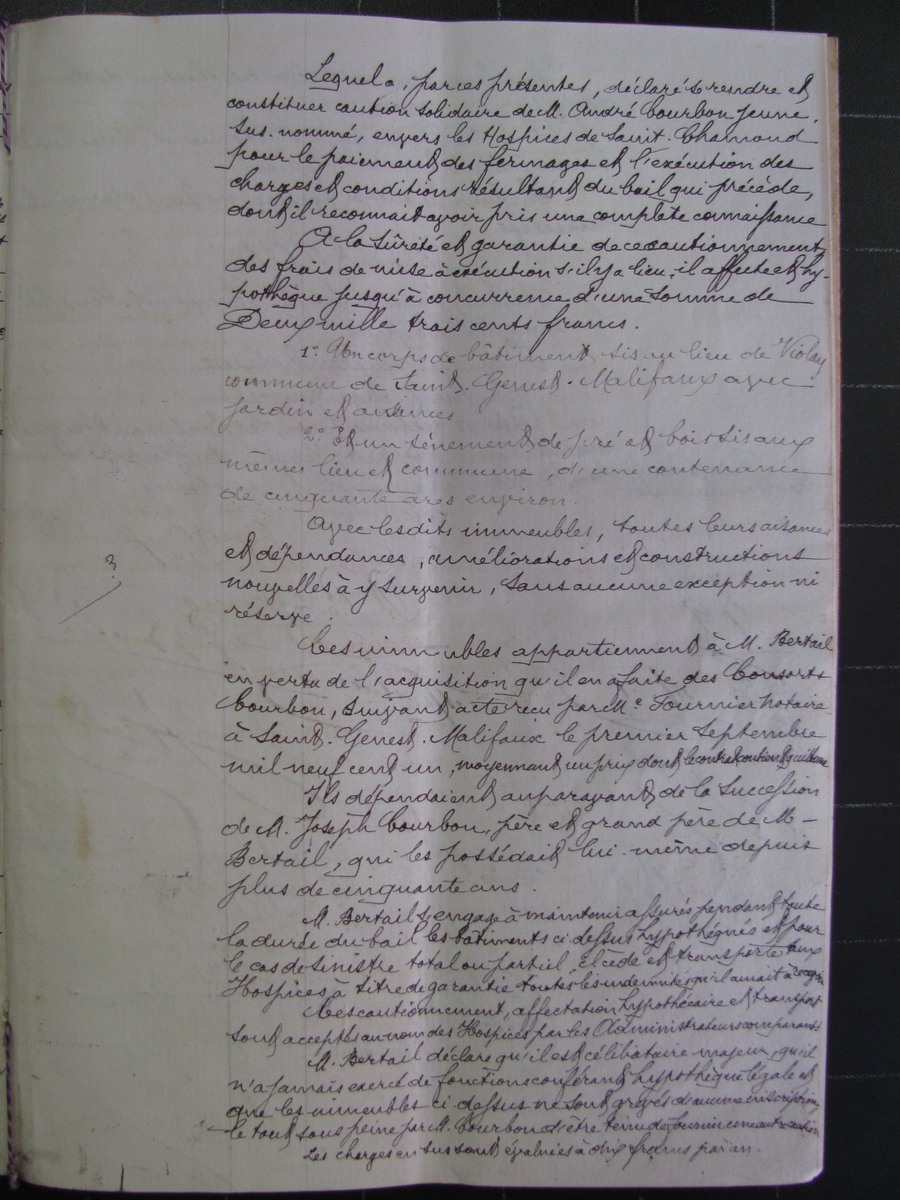 Lequel a, par ces présentes, déclaré se rendre et
constituer caution solidaire de M. André Courbon jeune,
sus. nommé, envers les Hospices de Saint. Chamond
pour le paiement des fermages et l'exécution des
charges et conditions résultant du bail qui précède,
dont il reconnait avoir pris une complète connaissance
A la sûreté et garantie de ce cautionnement
des frais de mise à exécution s'il y a lieu, il affecte et hy-
pothèque jusqu'à concurrence d'une somme de
Deux mille trois cents francs.
1° Un corps de bâtiment sis au lieu de Violay
commune de Saint. Genest. Malifaux avec
jardin et aisances
2° Et un ténement de pré et bois sis aux
mêmes lieu et commune, d'une contenance
de cinquante ares environ.
Avec lesdits immeubles, toutes leurs aisances
et dépendances, améliorations et constructions
nouvelles à y survenir, sans aucune exception ni
réserve.
Ces immeubles appartiennent à M. Bertail
en vertu de l'acquisition qu'il en a faite des Consorts
Courbon, suivant acte reçu par Me Fournier notaire
à Saint. Genest. Malifaux le premier Septembre
mil neuf cent un, moyennant un prix dont le contrat contient quittance
Ils dépendaient auparavant de la succession
de M. Joseph Courbon, père et grand père de M-
Bertail, qui les possédait lui. même depuis
plus de cinquante ans.
M. Bertail s'engage à maintenir assurés pendant toute
la durée du bail les bâtiments ci. dessus hypothéqués et pour
le cas de sinistre total ou partiel, il cède et transporte aux
Hospices à titre de garantie toutes les indemnités qu'il aurait à
Ces cautionnement, affectation hypothécaire et transport
sont acceptés au nom des Hospices par les Administrateurs comparants
M. Bertail déclare qu'il est célibataire majeur, qu'il
n'a jamais exercé de fonctions conférant hypothèque légale et
que les immeubles ci. dessus ne sont grevés d'aucune inscription,
le tout sous peine par M. Courbon d'être tenu de fournir une autre caution
Les charges en sus sont évaluées à dix francs par an.